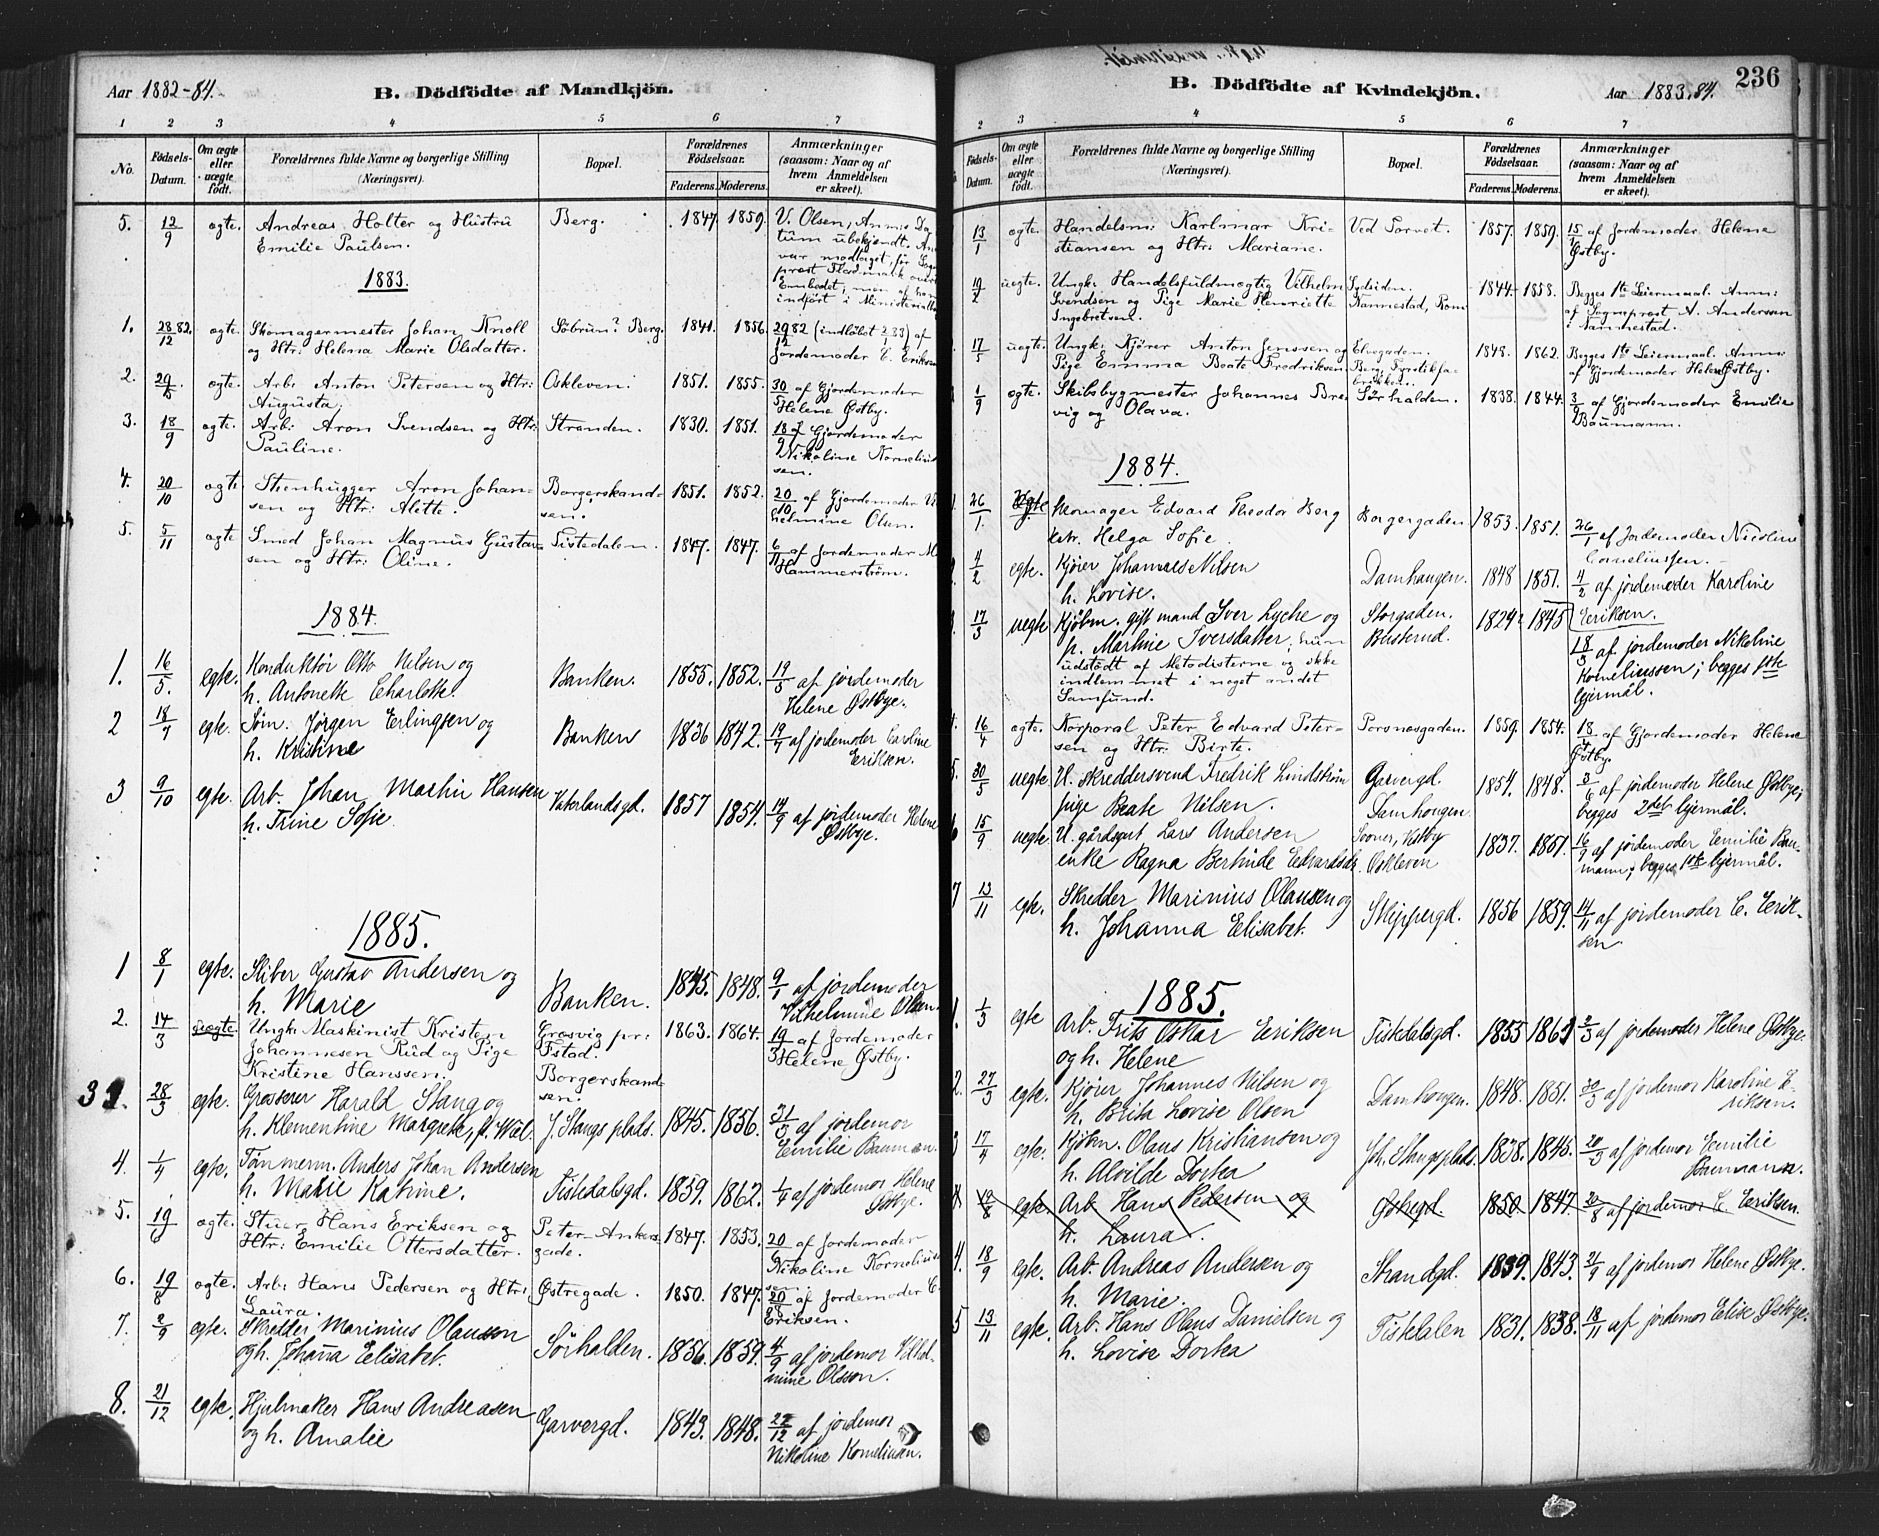 Aar 1882-84.
B. Dödfödte af Mandkjön.
1 2 3 4 5 6 7
No.
Födsels-Datum.
Om ægte eller uægte födt.
Forældrenes fulde Navne og borgerlige Stilling
(Næringsvei).
Bopæl.
Forældrenes Födselsaar.
Faderens. Moderens.
Anmærkninger
(saasom: Naar og af
hvem Anmeldelsen
er skeet).
5. 12/9 ægte. Andreas Holter og Hustru Berg. 1847. 1859. V. Olsen, Anm: Da
Emilie Paulsen. tum ubekjendt. An
var modtaget, før Sogne
1883. prest Flodmark overt
Embedet, men af ham
indført i Ministerialb
1. 28/12 82. ægte. Skomagermester Johan Knoll Søbrum? Berg. 1841. 1856. 29/12 82 (indløbet 2/1 83) af
og Htr: Helena Marie Olsdatter. Jordemoder C. Eriksen
2. 29/5 ægte. Arb: Anton Petersen og Htr: Oskleven. 1851. 1855. 30/5 af Gjordemoder
Augusta. Helene Østby.
3. 18/9 ægte. Arb: Aron Svendsen og Htr: Stranden. 1830. 1851. 18/9 af Gjordemoder
Pauline. Nikoline Korneliussen.
4. 20/10 ægte Stenhugger Aron Johan- Borgerskand- 1851. 1852. 20/10 af Gjordemoder Vil
sen og Htr: Alette. sen. helmine Olsen.
5. 5/11 ægte Smed Johan Magnus Gustav- Tistedalen. 1847. 1847. 6/11 af Jordemoder M
sen og Htr: Oline. Hammerstrøm.
1884.
1. 16/5. egte. Konduktør Otto Nilsen og Banken. 1855. 1852. 19/5 af jordemoder
h. Antonette Charlotte. Helene Østbye.
2 18/7 egte. Tøm. Jørgen Erlingsen og Banken 1836 1842. 19/7 af jordemoder Caroline
h. Kristine Eriksen.
3 9/10 egte. Arb. Johan Martin Hansen Vaterlandsgd. 1857 1854. af jordemoder Helene
h. Trine Sofie. Østbye.
1885.
1 8/1 egte. Sliber Gustav Andersen og Banken. 1845. 1848. 9/1 af jordemoder
h. Marie Vilhelmine Olsen.
2. 14/3 uægte Ungk: Maskinist Kristen Grosvig pr: 1863. 1864. 19/3 af Jordemoder
Johannesen Rud og Pige Fstad. Helene Østby.
Kristine Hanssen. Borgerskand-
sen.
3. 28/3 egte. Grosserer Harald Stang og J. Stangs plads. 1845. 1856. 31/3 af jordemor
h. Klementine Margrete, f. Wiel. Emilie Bauman.
4. 1/4 egte. Tømmerm. Anders Johan Andersen Tistedalsgd. 1859. 1862. 1/4 af jordemor Helene
h. Marie Katrine. Østbye.
5. 19/6 ægte. Stuer Hans Eriksen og Peter Ankers 1847. 1853. 20/6 af Jordemoder
Htr: Emilie Ottersdatter. gade. Nikoline Kornelius
sen.
6. 19/8 ægte. Arb: Hans Pedersen og Htr: Østregade. 1850. 1847. 20/8 af Jordemoder C.
Laura. Eriksen.
7. 2/9 egte. Skredder Marinius Olausson Sørhalden. 1856. 1859. 4/9 af jordemor Vilhel-
og h. Johanna Elisabet. mine Olsson.
8. 21/12 egte. Hjulmaker Hans Andreasen Garvergd. 1843. 1848. 22/12 af jordemor
og h. Amalie Nikoline Korneliusen.
B. Dödfödte af Kvindekjön.
Aar 1883, 84.
236
2 3 4 5 6 7
Födsels-Datum.
Om ægte eller uægte födt.
Forældrenes fulde Navne og borgerlige Stilling
(Næringsvei).
Bopæl.
Forældrenes Födselsaar.
Faderens. Moderens.
Anmærkninger
(saasom: Naar og af
hvem Anmeldelsen
er skeet).
13/1 ægte. Handelsm: Karlmar Kri- Ved Torvet. 1857. 1859. 15/1 af Jordemoder Helene
stiansen og Htr: Mariane. Østby.
19/2 uægte. Ungk: Handelsfuldmægtig Vilhelm Sydsiden. 1844. 1858. Begges 1te Leiermaal. Anm:
Svendsen og Pige Marie Henriette Nannestad, Rom af Sogneprest A. Andersen
Ingebretsen. i Nannestad.
17/5 uægte. Ungk: Kjører Anton Jenssen og Elvegaden. 1848. 1862. Begges 1te Leiermaal. Anm:
Pige Emma Beate Fredriksen. Berg, Fyrstikfa- af Gjordemoder Helene Østby.
brikken.
1/9 ægte. Skibsbygmester Johannes Bre Sørhalden. 1838. 1844. 3/9 af Gjordemoder Emilie
vig og Olava. Baumann.
1884.
1. 26/1. Egte Skomager Edvard Theodor Berg Borgergaden 1853. 1851. 26/1 af Jordemoder Nicoline
Hstr. Helga Sofie. Corneliussen.
4/2 egte. Kjører Johannes Nilsen Damhaugen. 1848 1851. 4/2 af jordemoder Karoline
h. Lovise. Eriksen.
3. 17/3 uegte Kjøbm. gift mand Iver Lyche og Storgaden. 1824? 1845 18/3 af jordemoder Nikoline
p. Martine Iversdatter; hun Busterud. Korneliussen; begges 1ste
udstødt af Metodisterne og ikke lejermål.
indlemmet i noget andet
Samfund.
4. 16/4 ægte. Korporal Peter Edvard Peter- Porsnæsgaden. 1859. 1854. 18/4 af Gjordemoder Helene
sen og Htr: Birte. Østby.
5. 30/5 uegte U. skreddersvend Fredrik Lindstrøm Garvergd. 1854. 1848. 3/6 af jordemoder Helene Østbye;
pige Beate Nilsen. Damhougen begges 2det lejermål.
6 15/9 uegte U. gårdsgut Lars Andersen 1837. 1861. 16/9 af jordemoder Emilie Bau-
enke Ragna Bertinde Edvardsdr. Oskleven mann; begges 1ste lejermål.
7 13/11 egte. Skredder Marinius Olausen og Skippergd. 1856 1859. 14/11 af jordemoder C. Erik-
h. Johanna Elisabet. sen.
1885.
1. 1/3 egte Arb. Frits Oskar Eriksen Tistedalsgd. 1855 1863 2/3 af jordemoder Helene Østbye.
og h. Helene
2. 27/3 egte. Kjører Johannes Nilsen og Damhougen. 1848. 1851. 30/3 af jordemor Karoline E-
h. Brita Lovise Olsen riksen.
3 17/4 egte. Kjøbm. Olaus Kristiansen og Joh. Stangs plads. 1838. 1845. af jordemor Emilie
h. Alvilde Dorka Baumann.
4 19/8 egte Arb. Hans Pedersen og Østregd. 1850. 1847. 20/8 af jordemor C. Eriksen.
h. Laura.
4. 18/9 egte. Arb. Andreas Andersen og Strandgd. 1839. 1843. 21/9 af jordemor Helene Østbye.
h. Marie.
5 13/11 egte. Arb. Hans Olaus Danielsen og Tistedalen 1831. 1838. 18/11 af jordemor Elise Østbye.
h. Lovise Dorka